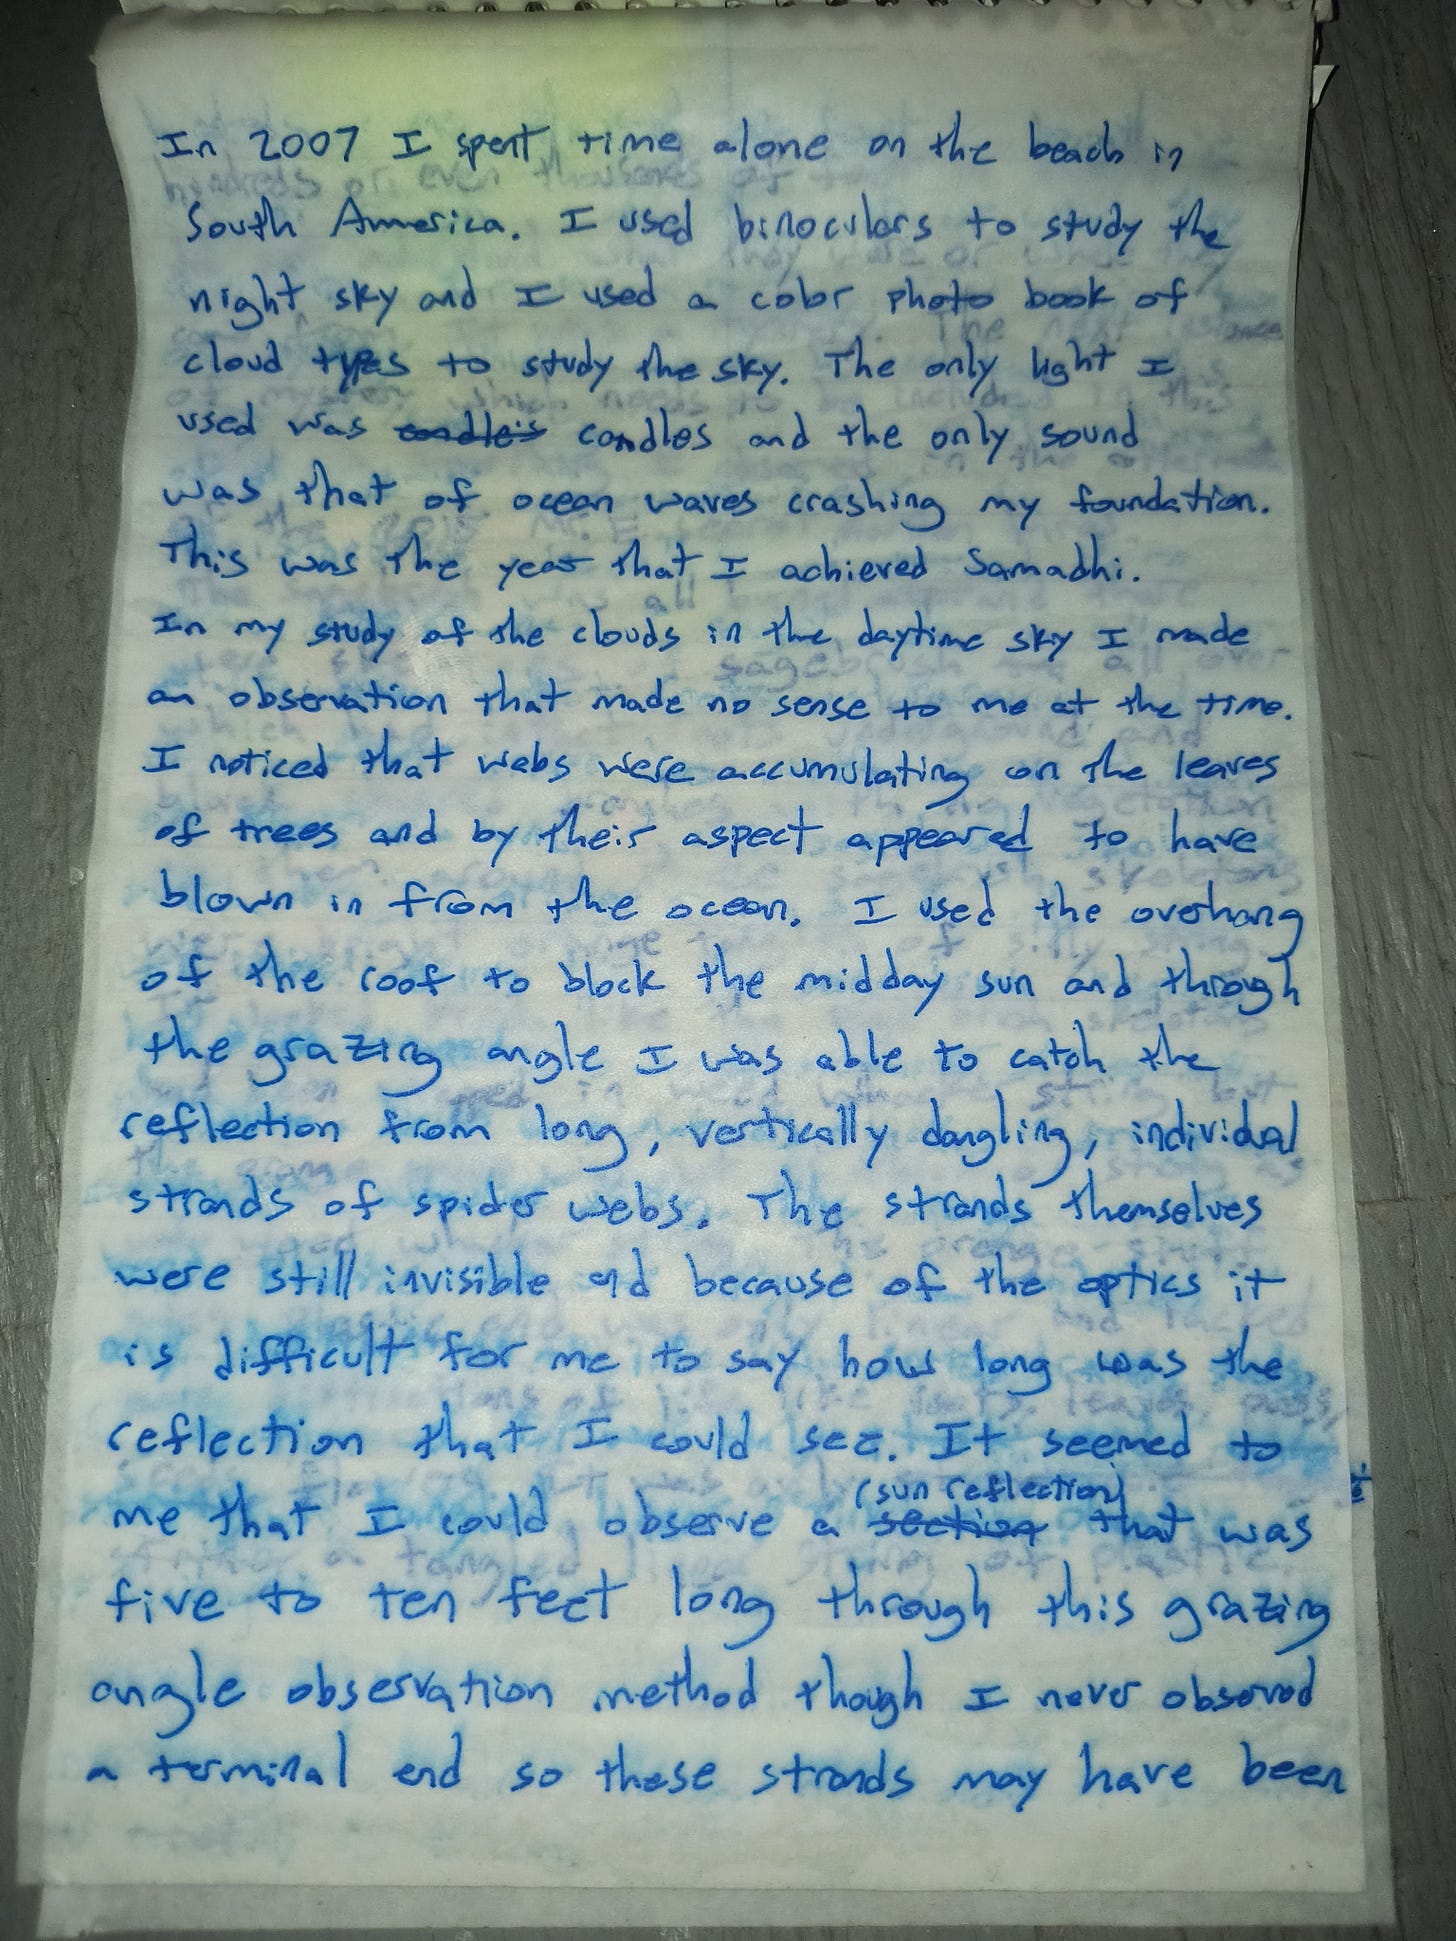 In 2007 I spent time alone on the beach in
South America. I used binoculars to study the
night sky and I used a color photo book of
cloud types to study the sky. The only light I
used was candles candles and the only sound
was that of ocean waves crashing my foundation.
This was the year that I achieved Samadhi.
In my study of the clouds in the daytime sky I made
an observation that made no sense to me at the time.
I noticed that webs were accumulating on the leaves
of trees and by their aspect appeared to have
blown in from the ocean. I used the overhang
of the roof to block the midday sun and through
the grazing angle I was able to catch the
reflection from long, vertically dangling, individual
strands of spider webs. The strands themselves
were still invisible and because of the optics it
is difficult for me to say how long was the
reflection that I could see. It seemed to
(sun reflection)
me that I could observe a section that was
five to ten feet long through this grazing
angle observation method though I never observed
a terminal end so these strands may have been